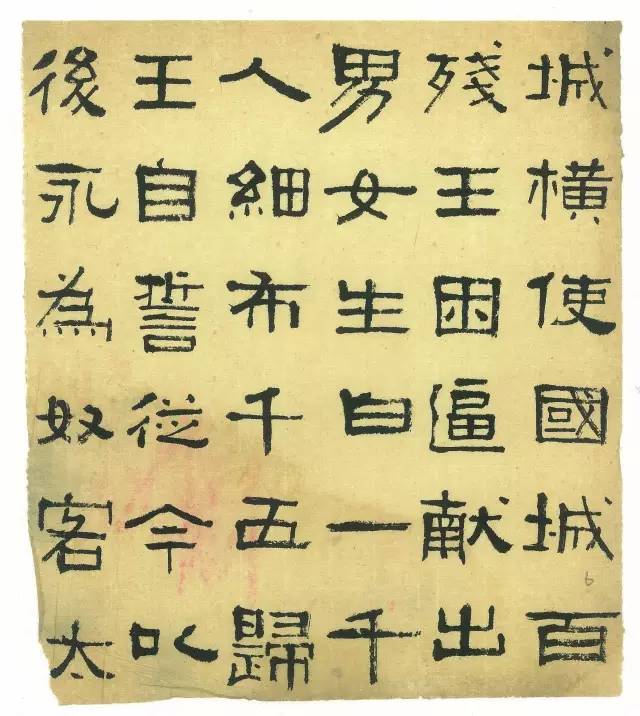 城橫使國城百
殘王困逼献出
男女生白一千
人細布千五歸
王自誓從今以
後永為奴客太
6